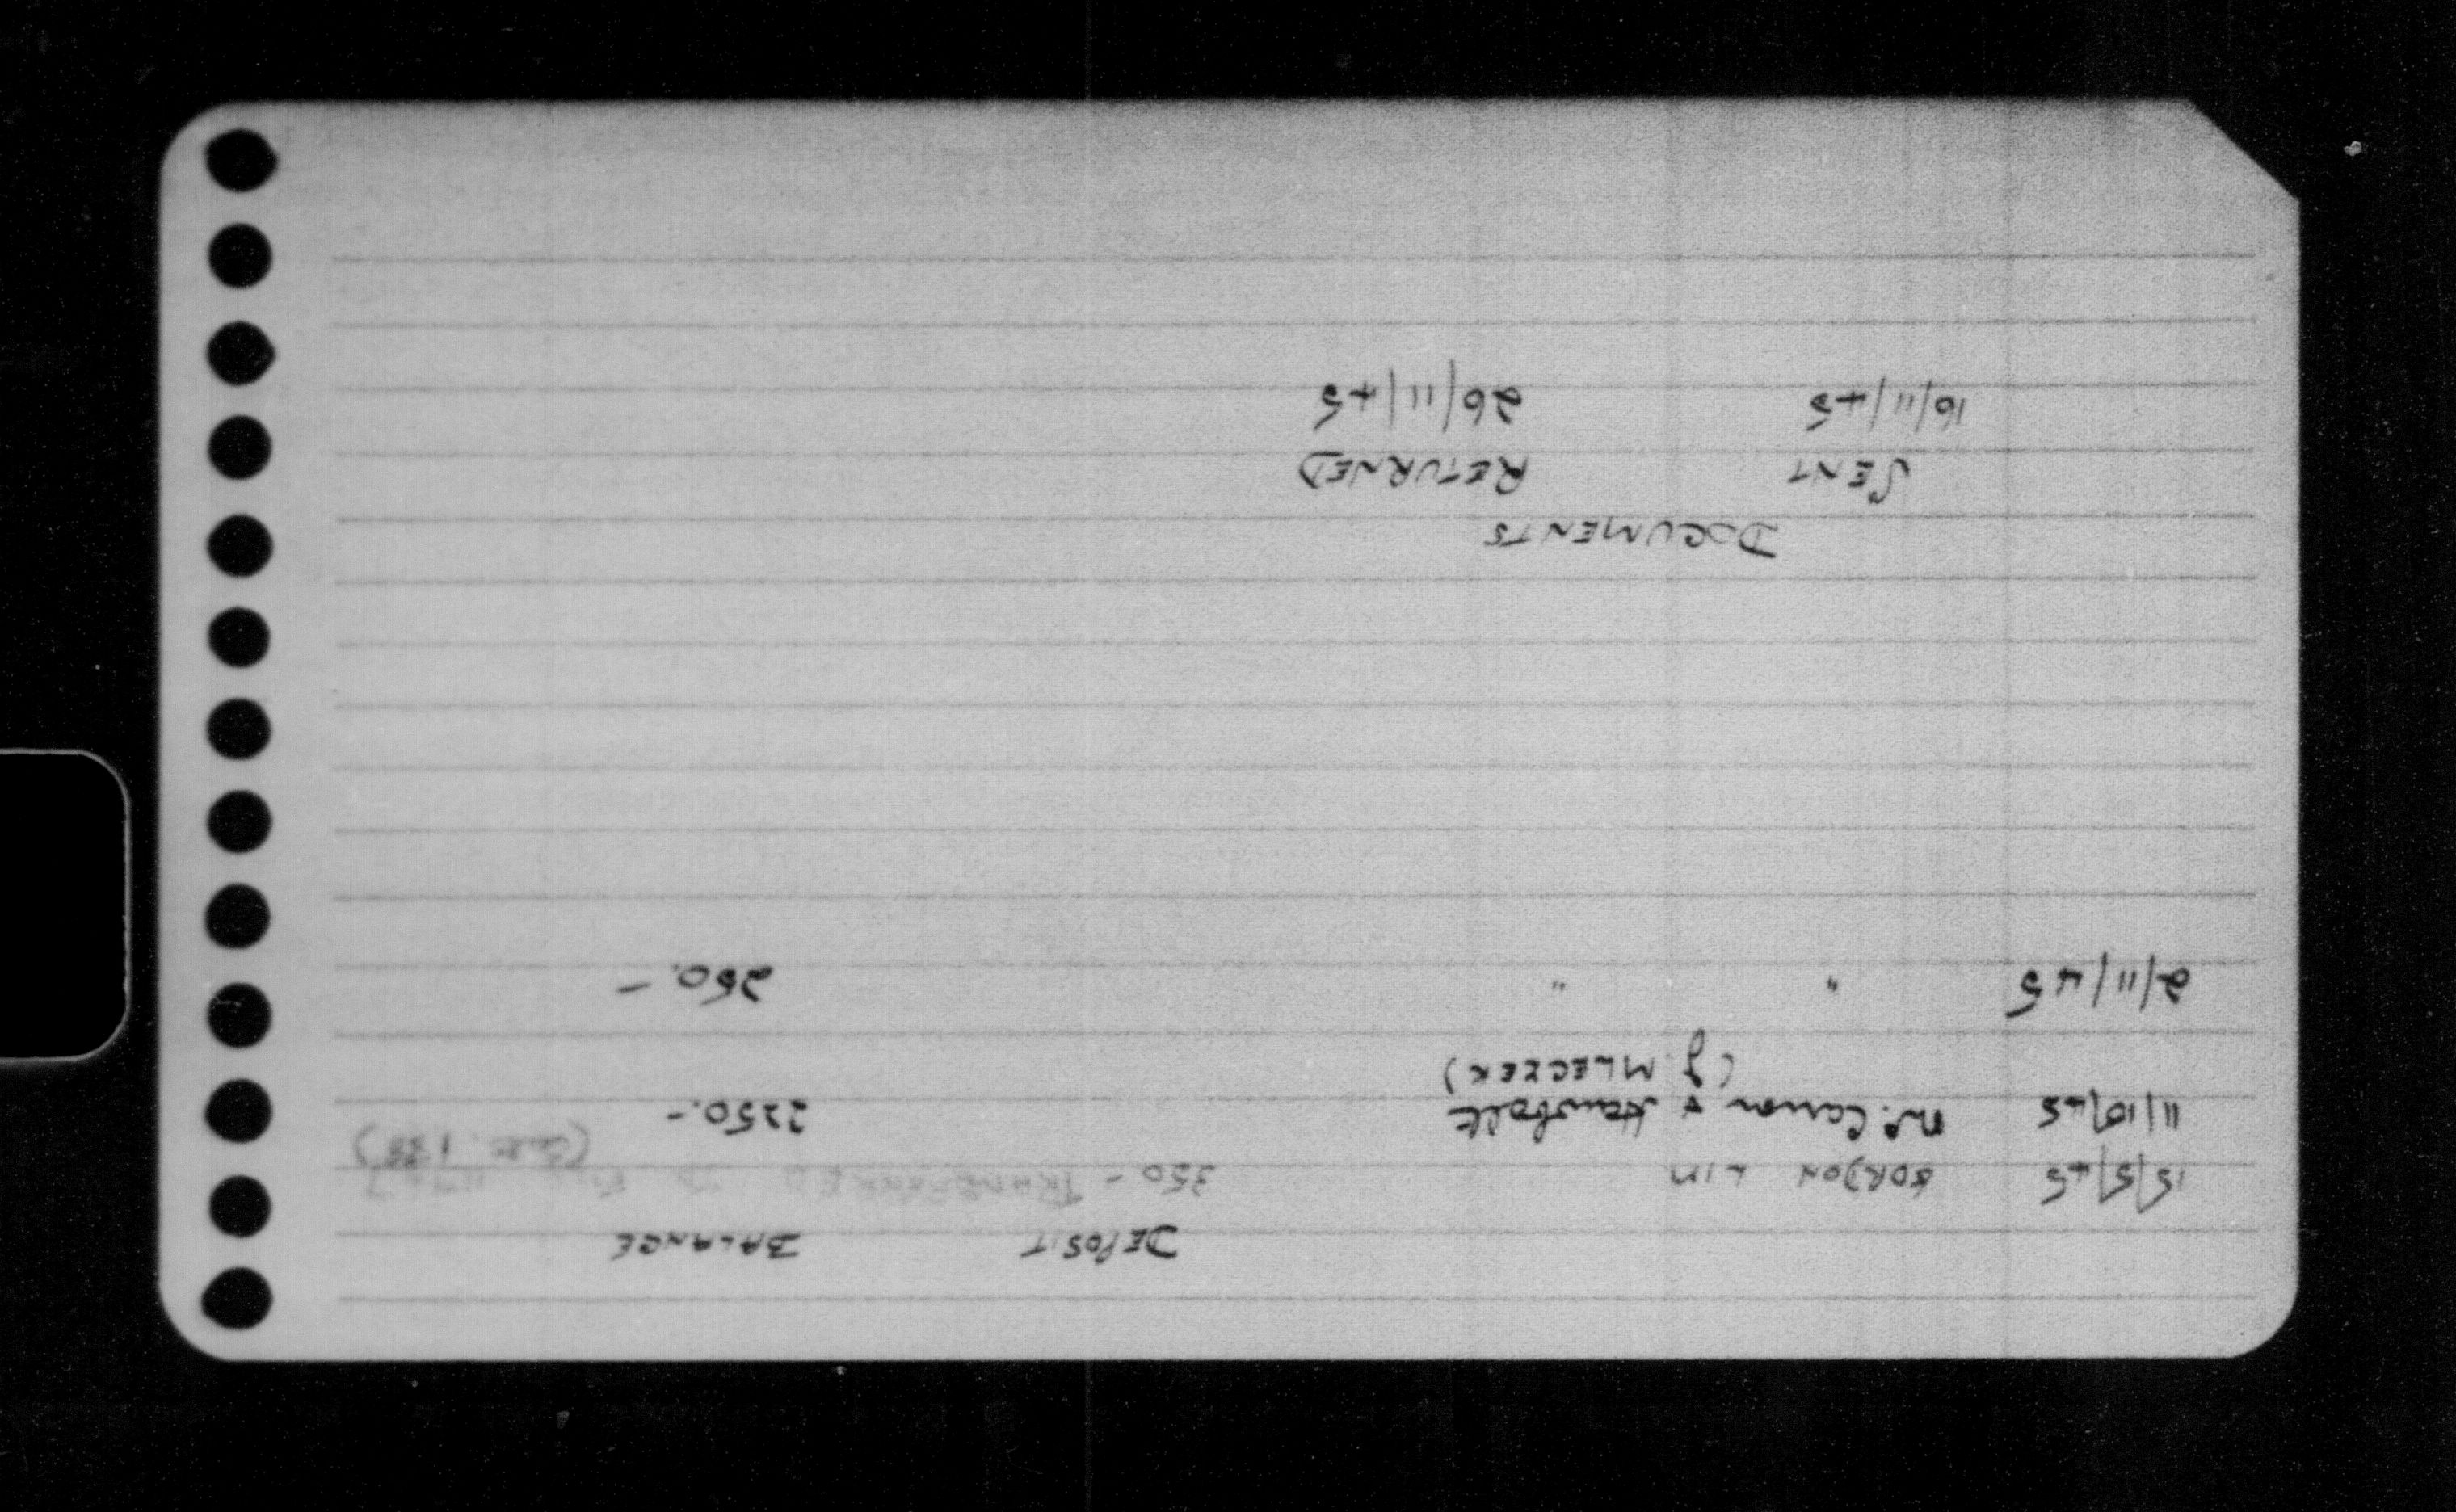 DEPOSIT BALANCE
15/5/45 GORDON LIM 350 - TRANSFERRED TO
11/10/45 Mc. Carron & 2250.-
(J. MLECZEK)
2/11/45 " " 250.-
DOCUMENTS
SENT RETURNED
16/11/45 26/11/45